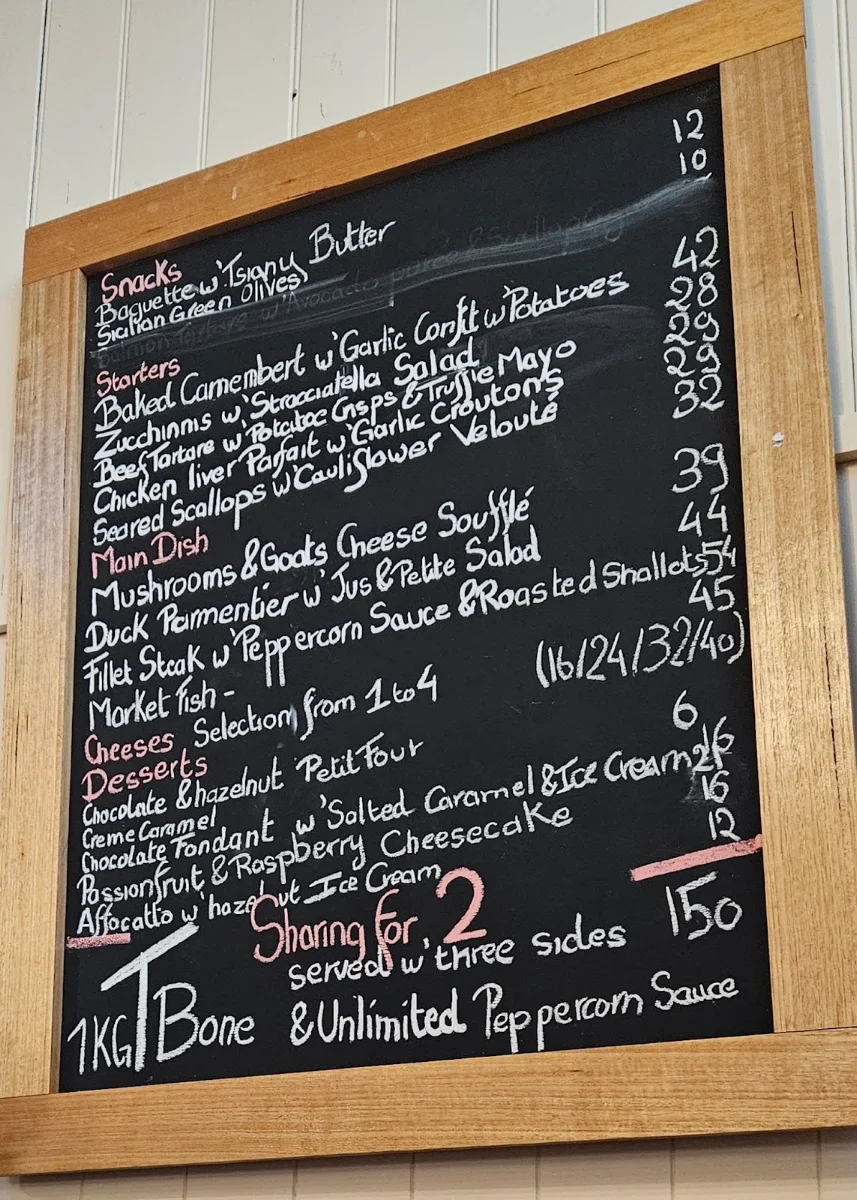 Snacks
Baguette w' Isigny Butter 12
Sicilian Green Olives 10
Salmon Tartare w' Avocado purée &
Starters
Baked Camembert w' Garlic Confit w' Potatoes 42
Zucchinnis w' Stracciatella Salad 28
Beef Tartare w' Potatoe Crisps & Truffle Mayo 29
Chicken liver Parfait w' Garlic Croutons 29
Seared Scallops w' Cauliflower Velouté 32
Main Dish
Mushrooms & Goats Cheese Soufflé 39
Duck Parmentier w' Jus & Petite Salad 44
Fillet Steak w' Peppercorn Sauce & Roasted Shallots 54
Market Fish - 45
Cheeses Selection from 1 to 4 (16/24/32/40)
Desserts
Chocolate & hazelnut Petit Four 6
Creme Caramel 16
Chocolate Fondant w' Salted Caramel & Ice Cream
Passionfruit & Raspberry Cheesecake 16
Affocatto w' hazelnut Ice Cream 12
Sharing for 2
served w' three sides 150
1KG T Bone & Unlimited Peppercorn Sauce